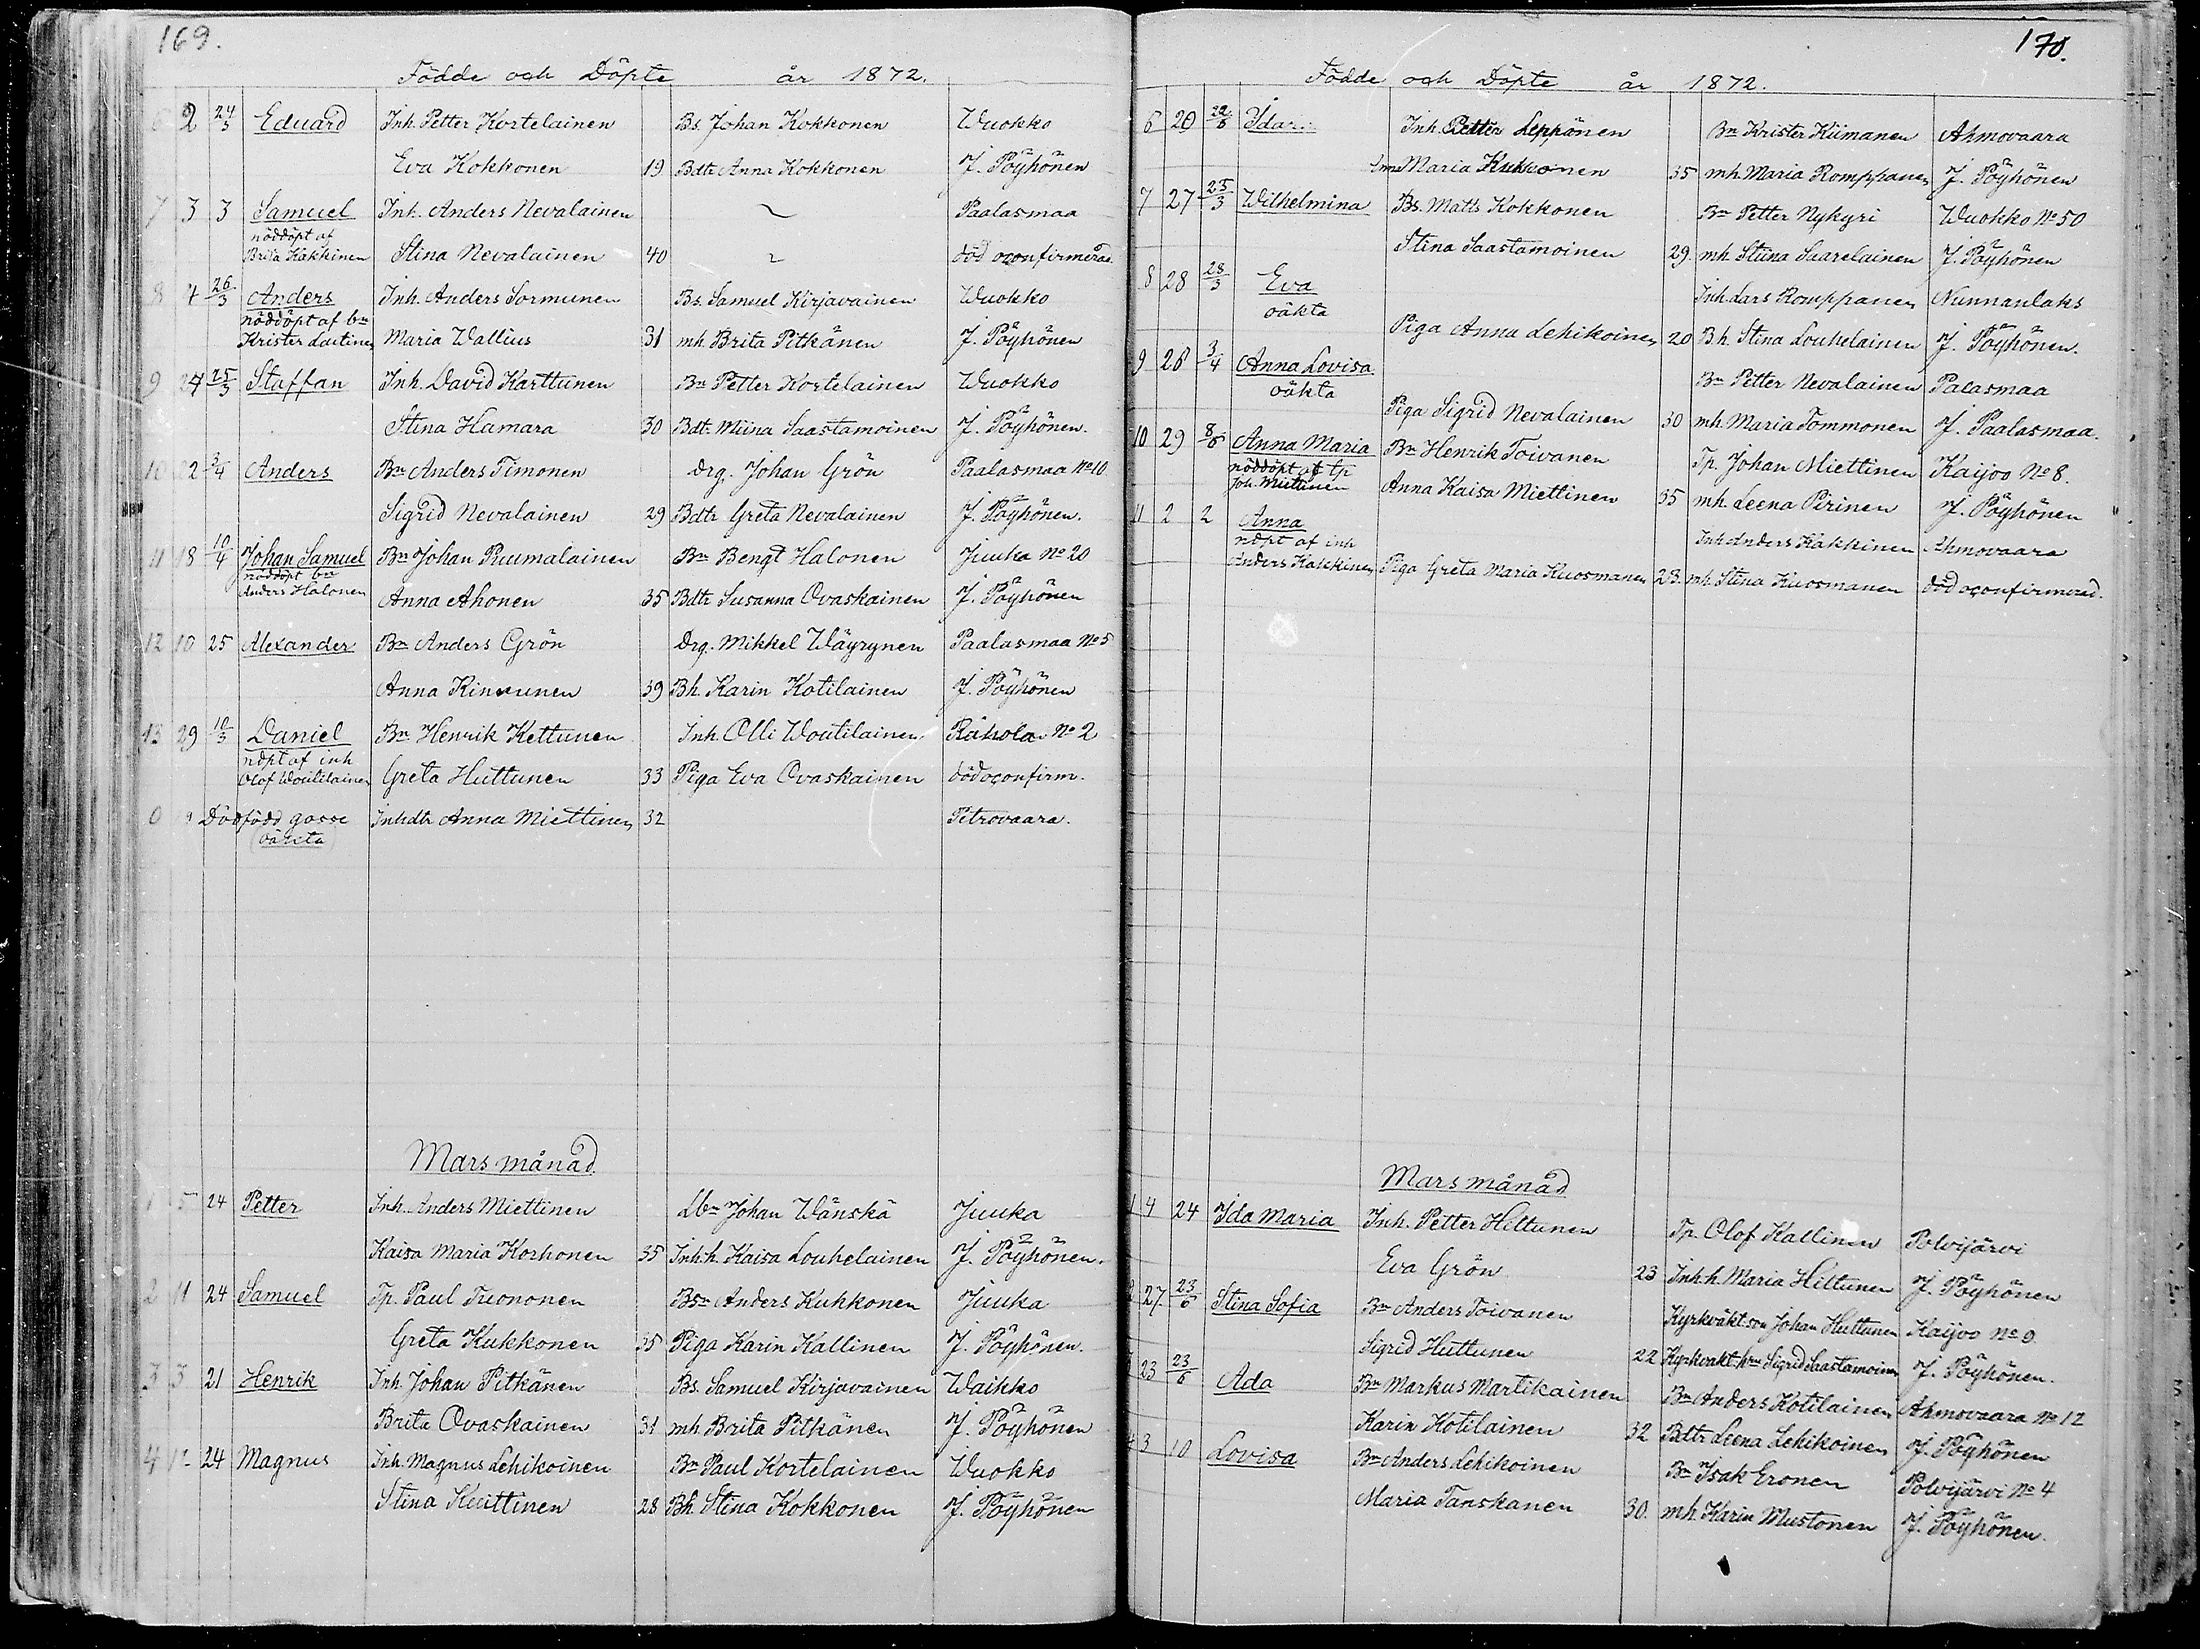 169.
Födde och Döpte år 1872.
2 24/3 Eduard Inh. Petter Kortelainen Bs. Johan Kokkonen Wuokko
Eva Kokkonen 19 Bdtr Anna Kokkonen J. Pöyhönen
7 3 3 Samuel Inh. Anders Nevalainen Paalasmaa
nöddöpt af
Brita Kakkinen Stina Nevalainen 40 död oconfirmerad
8 4 26/3 Anders Inh. Anders Sormunen Bs. Samuel Kirjavainen Wuokko
nöddöpt af bn
Krister Lautinen Maria Wallius 31 mh. Brita Pitkänen J. Pöyhönen
9 24 25/3 Staffan Inh. David Karttunen Bn Petter Kortelainen Wuokko
Stina Hamara 30 Bdtr Miina Saastamoinen J. Pöyhönen.
10 22 3/4 Anders Bn Anders Timonen Drg. Johan Grön Paalasmaa No 10
Sigrid Nevalainen 29 Bdtr Greta Nevalainen J. Pöyhönen.
11 18 10/4 Johan Samuel Bn Johan Puumalainen Bn Bengt Halonen Juuka No 20
nöddöpt bn
Anders Halonen Anna Ahonen 35 Bdtr Susanna Ovaskainen J. Pöyhönen
12 10 25 Alexander Bn Anders Grön Drg. Mikkel Wäyrynen Paalasmaa No 5
Anna Kinnunen 39 Bh. Karin Kotilainen J. Pöyhönen
13 29 10/3 Daniel Bn Henrik Kettunen Inh. Olli Woutilainen Rahola No 2
ndpt af inh
Olof Woutilainen Greta Huttunen 33 Piga Eva Ovaskainen död oconfirm.
0 Dödfödd gosse Inhdtr Anna Miettinen 32 Petrovaara.
(oäkta)
Mars månad.
1 5 24 Petter Inh. Anders Miettinen Lbn Johan Wänskä Juuka
Kaisa Maria Korhonen 35 Inh.h. Kaisa Louhelainen J. Pöyhönen.
2 11 24 Samuel Tp. Paul Tuononen Bsn Anders Kukkonen Juuka
Greta Kukkonen 35 Piga Karin Kallinen J. Pöyhönen.
3 3 21 Henrik Inh. Johan Pitkänen Bs. Samuel Kirjavainen Waikko
Brita Ovaskainen 31 mh. Brita Pitkänen J. Pöyhönen
4 12 24 Magnus Inh. Magnus Lehikoinen Bn Paul Kortelainen Wuokko
Stina Kuittinen 28 Bh. Stina Kokkonen J. Pöyhönen
170.
Födde och Döpte år 1872.
6 20 22/6 Ida Inh. Petter Leppönen Bn Krister Kiimanen Ahmovaara
Maria Kukkonen 35 mh. Maria Romppanen J. Pöyhönen
7 27 25/3 Wilhelmina Bs. Matts Kokkonen Bn Petter Nykyri Wuokko No 50
Stina Saastamoinen 29 mh. Stiina Saarelainen J. Pöyhönen
8 28 28/3 Eva Inh. Lars Romppanen Nunnanlaks
oäkta Piga Anna Lehikoinen 20 Bh. Stina Louhelainen J. Pöyhönen.
9 28 3/4 Anna Lovisa Bn Petter Nevalainen Palasmaa
oäkta Piga Sigrid Nevalainen 30 mh. Maria Tommonen J. Paalasmaa.
10 29 8/6 Anna Maria Bn Henrik Toivanen Tp. Johan Miettinen Kaijoo No 8.
nöddöpt af tp
Joh. Miettinen Anna Kaisa Miettinen 35 mh. Leena Pirinen J. Pöyhönen
11 2 2 Anna Inh Anders Kakkinen Ahmovaara
ndpt af inh
Anders Kakkinen Piga Greta Maria Kuosmanen 23. mh. Stina Kuosmanen död oconfirmerad.
Mars månad
1 4 24 Ida Maria Inh. Petter Hiltunen Tp. Olof Kallinen Polvijärvi
Eva Grön 23 Inh.h. Maria Hiltunen J. Pöyhönen
2 27. 23/6 Stina Sofia Bn Anders Toivanen Kyrkväkt.son Johan Huttunen Kaijoo No 9
Sigrid Huttunen 22 Kyrkvakt.hru Sigrid Saastamoinen J. Pöyhönen.
23 23/6 Ada Bn Markus Martikainen Bn Anders Kotilainen Ahmovaara No 12
Karin Kotilainen 32 Bdtr Leena Lehikoinen J. Pöyhönen
4 3 10 Lovisa Bn Anders Lehikoinen Bn Isak Eronen Polvijärvi No 4
Maria Tanskanen 30. mh. Karin Mustonen J. Pöyhönen.